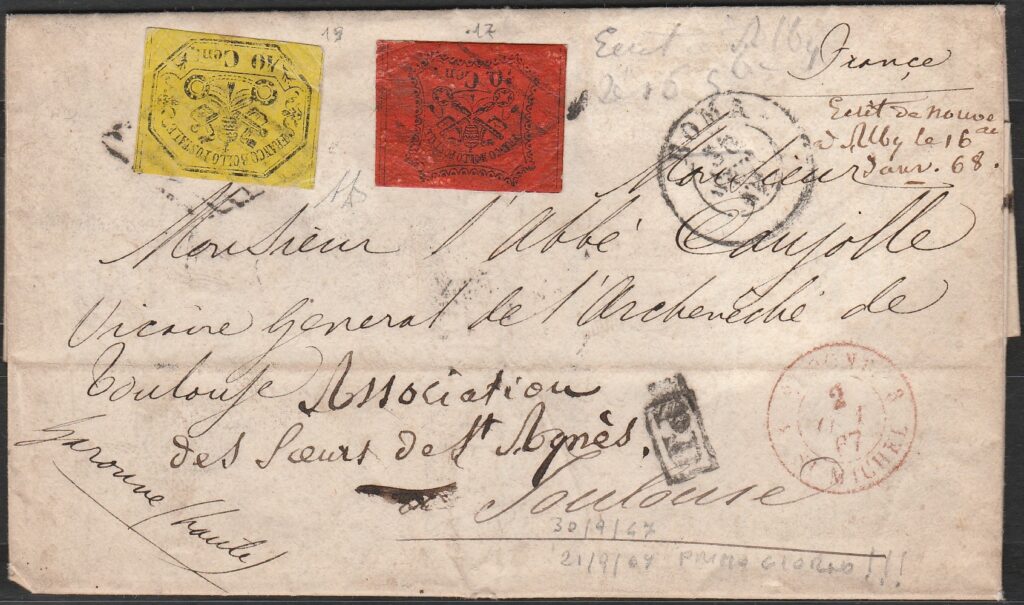 19
17
40 Cent
FRANCO BOLLO POSTALE
Cent
FRANCO BOLLO POSTALE
Ecrit Alby
France
ROMA
Ecrit de nouveau
à Alby le 16
Janv. 68.
Monsieur
Monsieur l'Abbé Caujolle
Vicaire General de l'Archevêché de
Toulouse Association
des Sœurs de St Agnès.
Garonne (haute)
P.D.
2
67
MICHEL
Toulouse
30/9/67
21/9/67 PRIMO GIORNO !!!